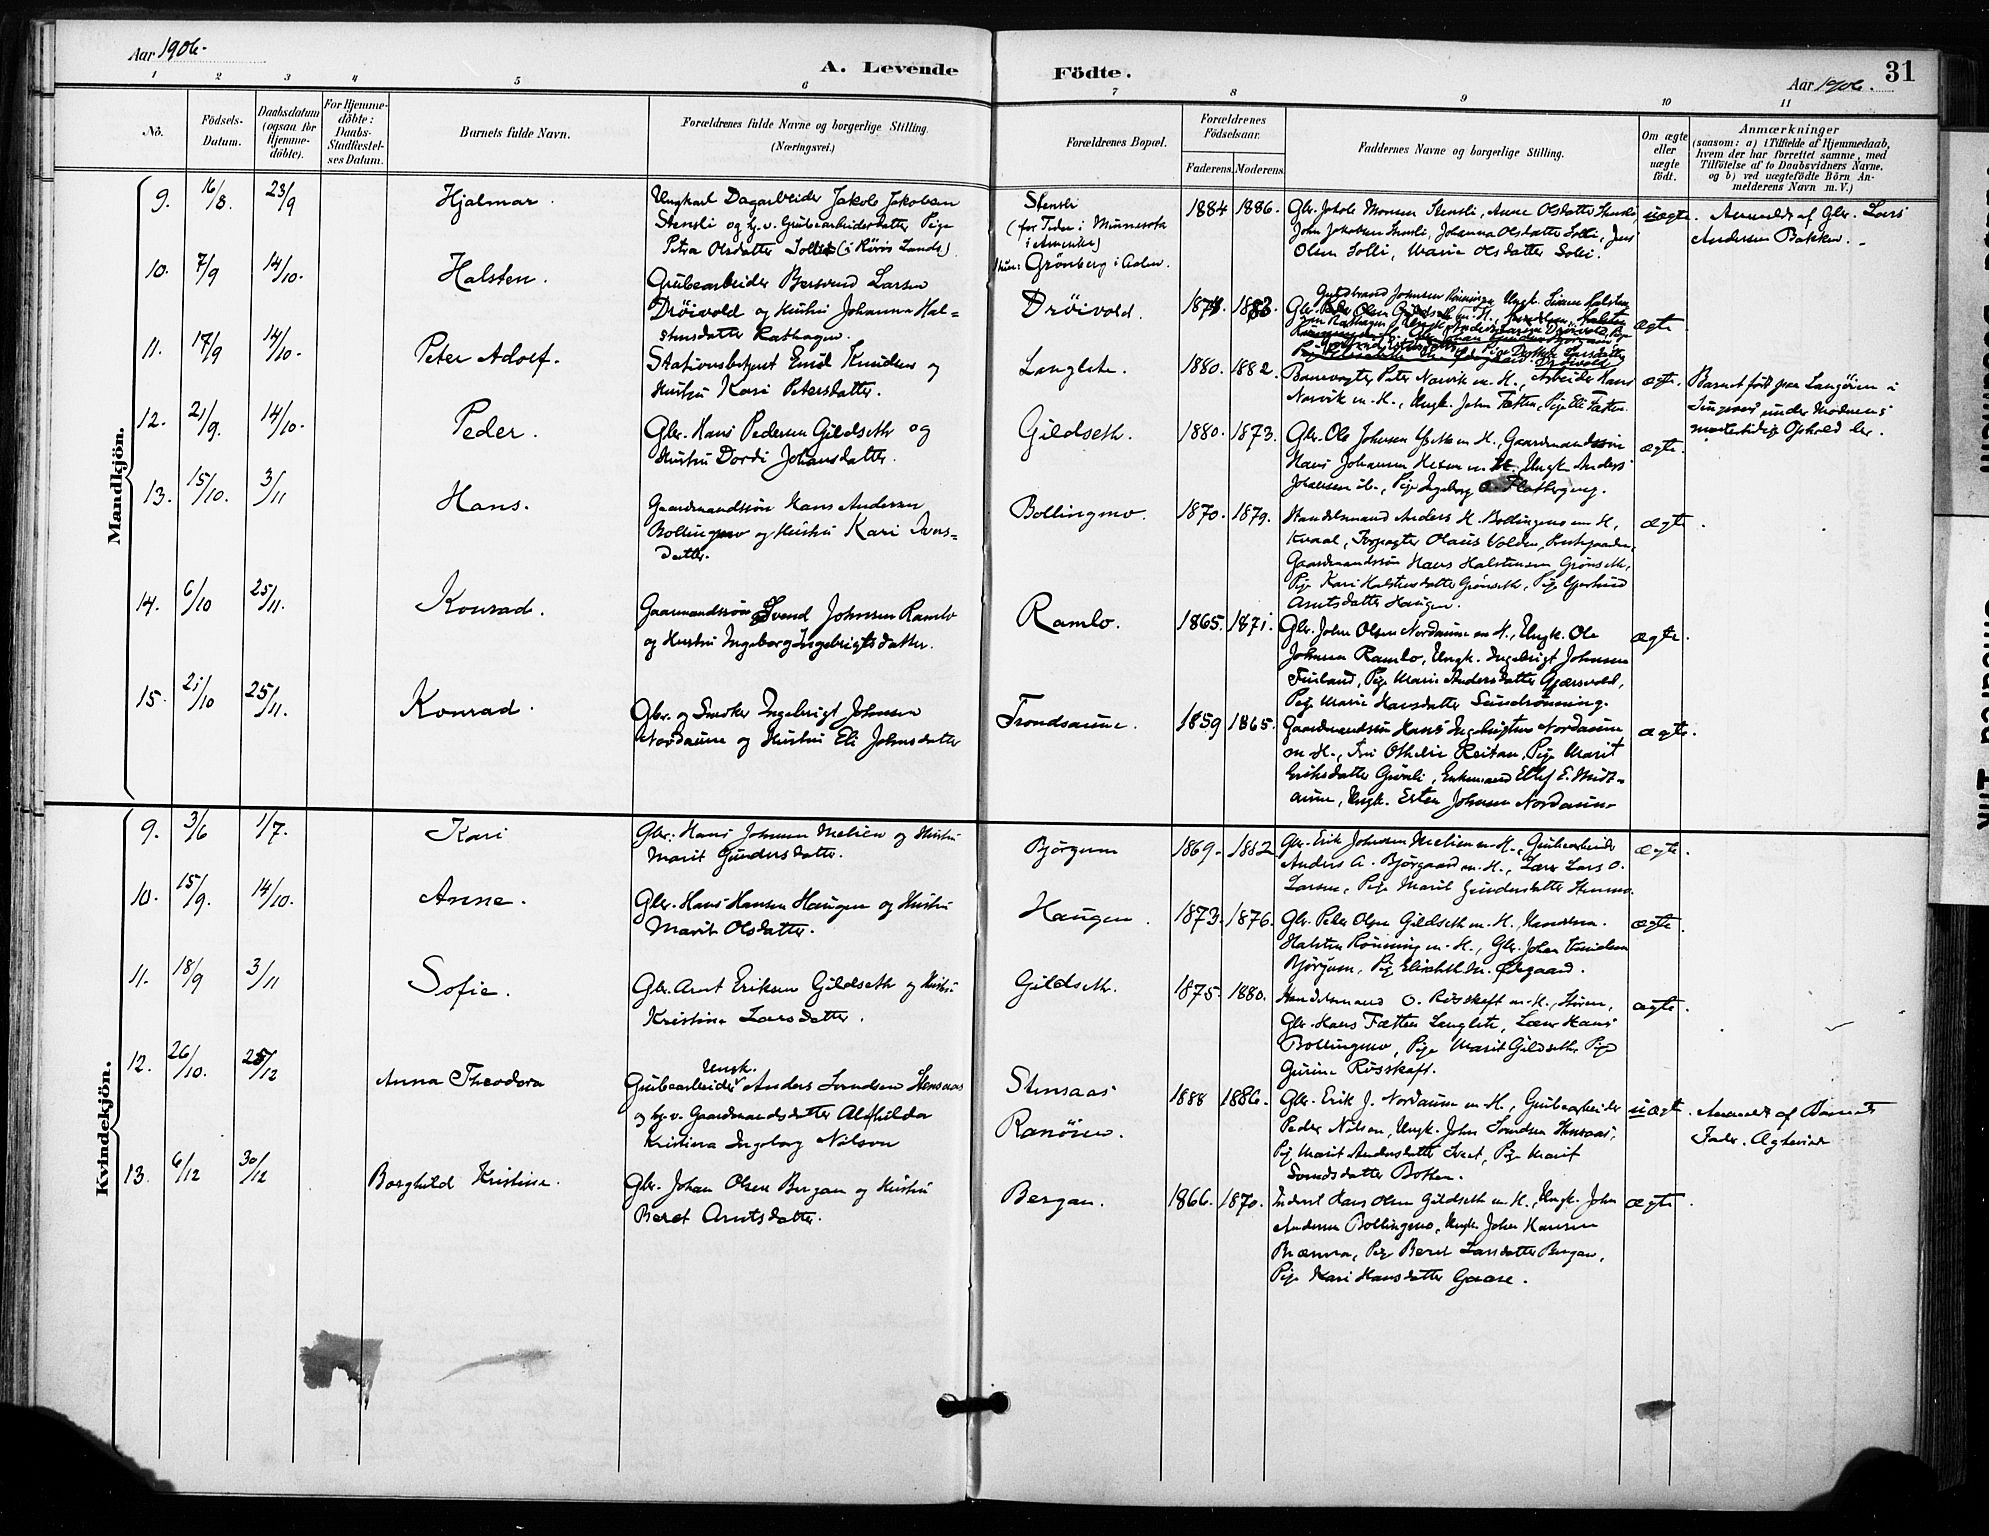 Aar 1906.
A. Levende
Födte.
Aar 1906.
31
1 2 3 4 5 6 7 8 9 10 11
No.
Födsels-
Datum.
Daabsdatum
(ogsaa for
Hjemme-
döbte).
For Hjemme-
döbte:
Daabs-
Stadfæstel-
ses Datum.
Barnets fulde Navn.
Forældrenes fulde Navne og borgerlige Stilling.
(Næringsvei.)
Forældrenes Bopæl.
Forældrenes
Födselsaar.
Faderens. Moderens.
Faddernes Navne og borgerlige Stilling.
Om ægte
eller
uægte
födt.
Anmærkninger
(saasom: a) i Tilfælde af Hjemmedaab,
hvem der har forrettet samme, med
Tilföielse af to Daabsvidners Navne,
og b) ved uægtefödte Börn An-
melderens Navn m. V.)
Mandkjön.
9. 16/8. 23/9 Hjalmar.
Ungkarl Dagarbeider Jakob Jakobsen
Stensli og Grubearbeiderdatter Pige
Petra Olsdatter (i Röros Lands)
Stensli
(for Tiden i Minnesota
i Amerika)
Grönberg i Aalen.
1884 1886. Gbr. Jakob Monsen Stensli, Anne Olsdatter Stensli
John Jakobsen Stensli, Johanna Olsdatter Solli, Jens
Olsen Solli, Marie Olsdatter Solli.
uægte. Anmeldt af Gbr. Lars
Andersen Bakken.
10. 7/9 14/10. Halsten.
Grubearbeider Bersvend Larsen
Dröivold og Hustru Johanna Hal-
stensdatter Rathagen.
Dröivold. ægte
11. 17/9 14/10. Peter Adolf.
Stationsbetjent Emil Knudsen og
Hustru Kari Petersdatter.
Langlete. 1880. 1882.
Banevogter Peter Narvik m. H., Arbeider Hans
Narvik m. H., Ungk. John Fætten, Pige Eli Fætten.
ægte. Barnet född paa Langören i
under Moderens
midlertidige Ophold der.
12. 21/9. 14/10. Peder.
Gbr. Hans Pedersen Gildseth og
Hustru Dordi Johansdatter.
Gildseth. 1880. 1873. Gbr. Ole Johnsen m. H., Gaardmandssön
Hans Johansen m. H. Ungk. Anders
Johansen ib., Pige Ingeborg O. Flatbergeng.
ægte.
13. 15/10. 3/11 Hans.
Gaardmandssön Hans Andersen
Bollingmo og Hustru Kari Ivers-
datter.
Bollingmo. 1870. 1879. Handelsmand Anders H. Bollingmo m. H.,
Kvaal, Forpagter Olaus Volden, Prestegaarden,
Gaardmandssön Hans Halstensen Grönseth,
Pige Kari Halstensdatter Grönseth, Pige Gjertrud
Arntsdatter Haugen.
ægte.
14. 6/10 25/11. Konrad.
Gaarmandssön Svend Johnsen Ramlo
og Hustru Ingeborg Ingebrigtsdatter.
Ramlo. 1865. 1871. Gbr. John Olsen Nordaune m. H., Ungk. Ole
Johnsen Ramlo, Ungk. Ingebrigt Johnsen
Finland, Pige Marie Andersdatter Gjærsvold,
Pige Marie Hansdatter Sundrönning.
ægte.
15. 21/10 25/11. Konrad.
Gbr. og Snedker Ingebrigt Johnsen
Nordaune og Hustru Eli Johnsdatter
Trondsaune. 1859 1865. Gaardmandssön Hans Ingebrigtsen Nordaune
m. H., Frk. Othelie Reitan, Pige Marit
Eriksdatter Grönli, Enkemand Ellef E. Midt-
aune, Ungk. Esten Johnsen Nordaune.
ægte.
Kvindekjön.
9. 3/6 1/7. Kari
Gbr. Hans Johnsen Melien og Hustru
Marit Gundersdatter.
Björgum 1869. Gbr. Erik Johnsen Melien m. H., Grubearbeider
Anders A. Björgaard m. H., Lærer Lars O.
Larsen, Pige Marit Gundersdatter Stenmo.
ægte.
10. 15/9. 14/10. Anne.
Gbr. Hans Hansen Haugen og Hustru
Marit Olsdatter.
Haugen. 1873. 1876. Gbr. Peder Olsen Gildseth m. H., Handelsm.
Halsten Rönning m. H., Gbr. Johan Knudsen
Björgum, Pige Elisabeth M. Öhgaard.
ægte.
11. 18/9 3/11 Sofie.
Gbr. Arnt Eriksen Gildseth og Hustru
Kristine Larsdatter.
Gildseth. 1875. 1880. Handelsmand O. Rösskaft m. H., Stören,
Gbr. Hans Fætten Langlete, Lærer Hans
Bollingmo, Pige Marit Gildseth, Pige
Gurine Rösskaft.
ægte.
12. 26/10. 25/12 Anna Theodora
Ungk.
Grubearbeider Anders Svendsen Stensaas
og Gaardmandsdatter Alfhilda
Kristina Ingeborg Nilsen
Stensaas
Ranöien.
1888 1886. Gbr. Erik J. Nordaune m. H., Grubearbeider
Peder Nilsen, Ungk. John Svendsen Stensaas,
Pige Marit Andersdatter, Pige Marit
Svendsdatter Botten.
uægte. Anmeldt af Barnets
Fader.
13. 6/12 30/12 Borghild Kristine.
Gbr. Johan Olsen Bergan og Hustru
Beret Arntsdatter.
Bergan. 1866. 1870. Inderst Hans Olsen Gildseth m. H., Ungk. John
Andersen Bollingmo, Ungk. Johan Hansen
Brænna, Pige Beret Larsdatter Bergan,
Pige Kari Hansdatter Gaare.
ægte.